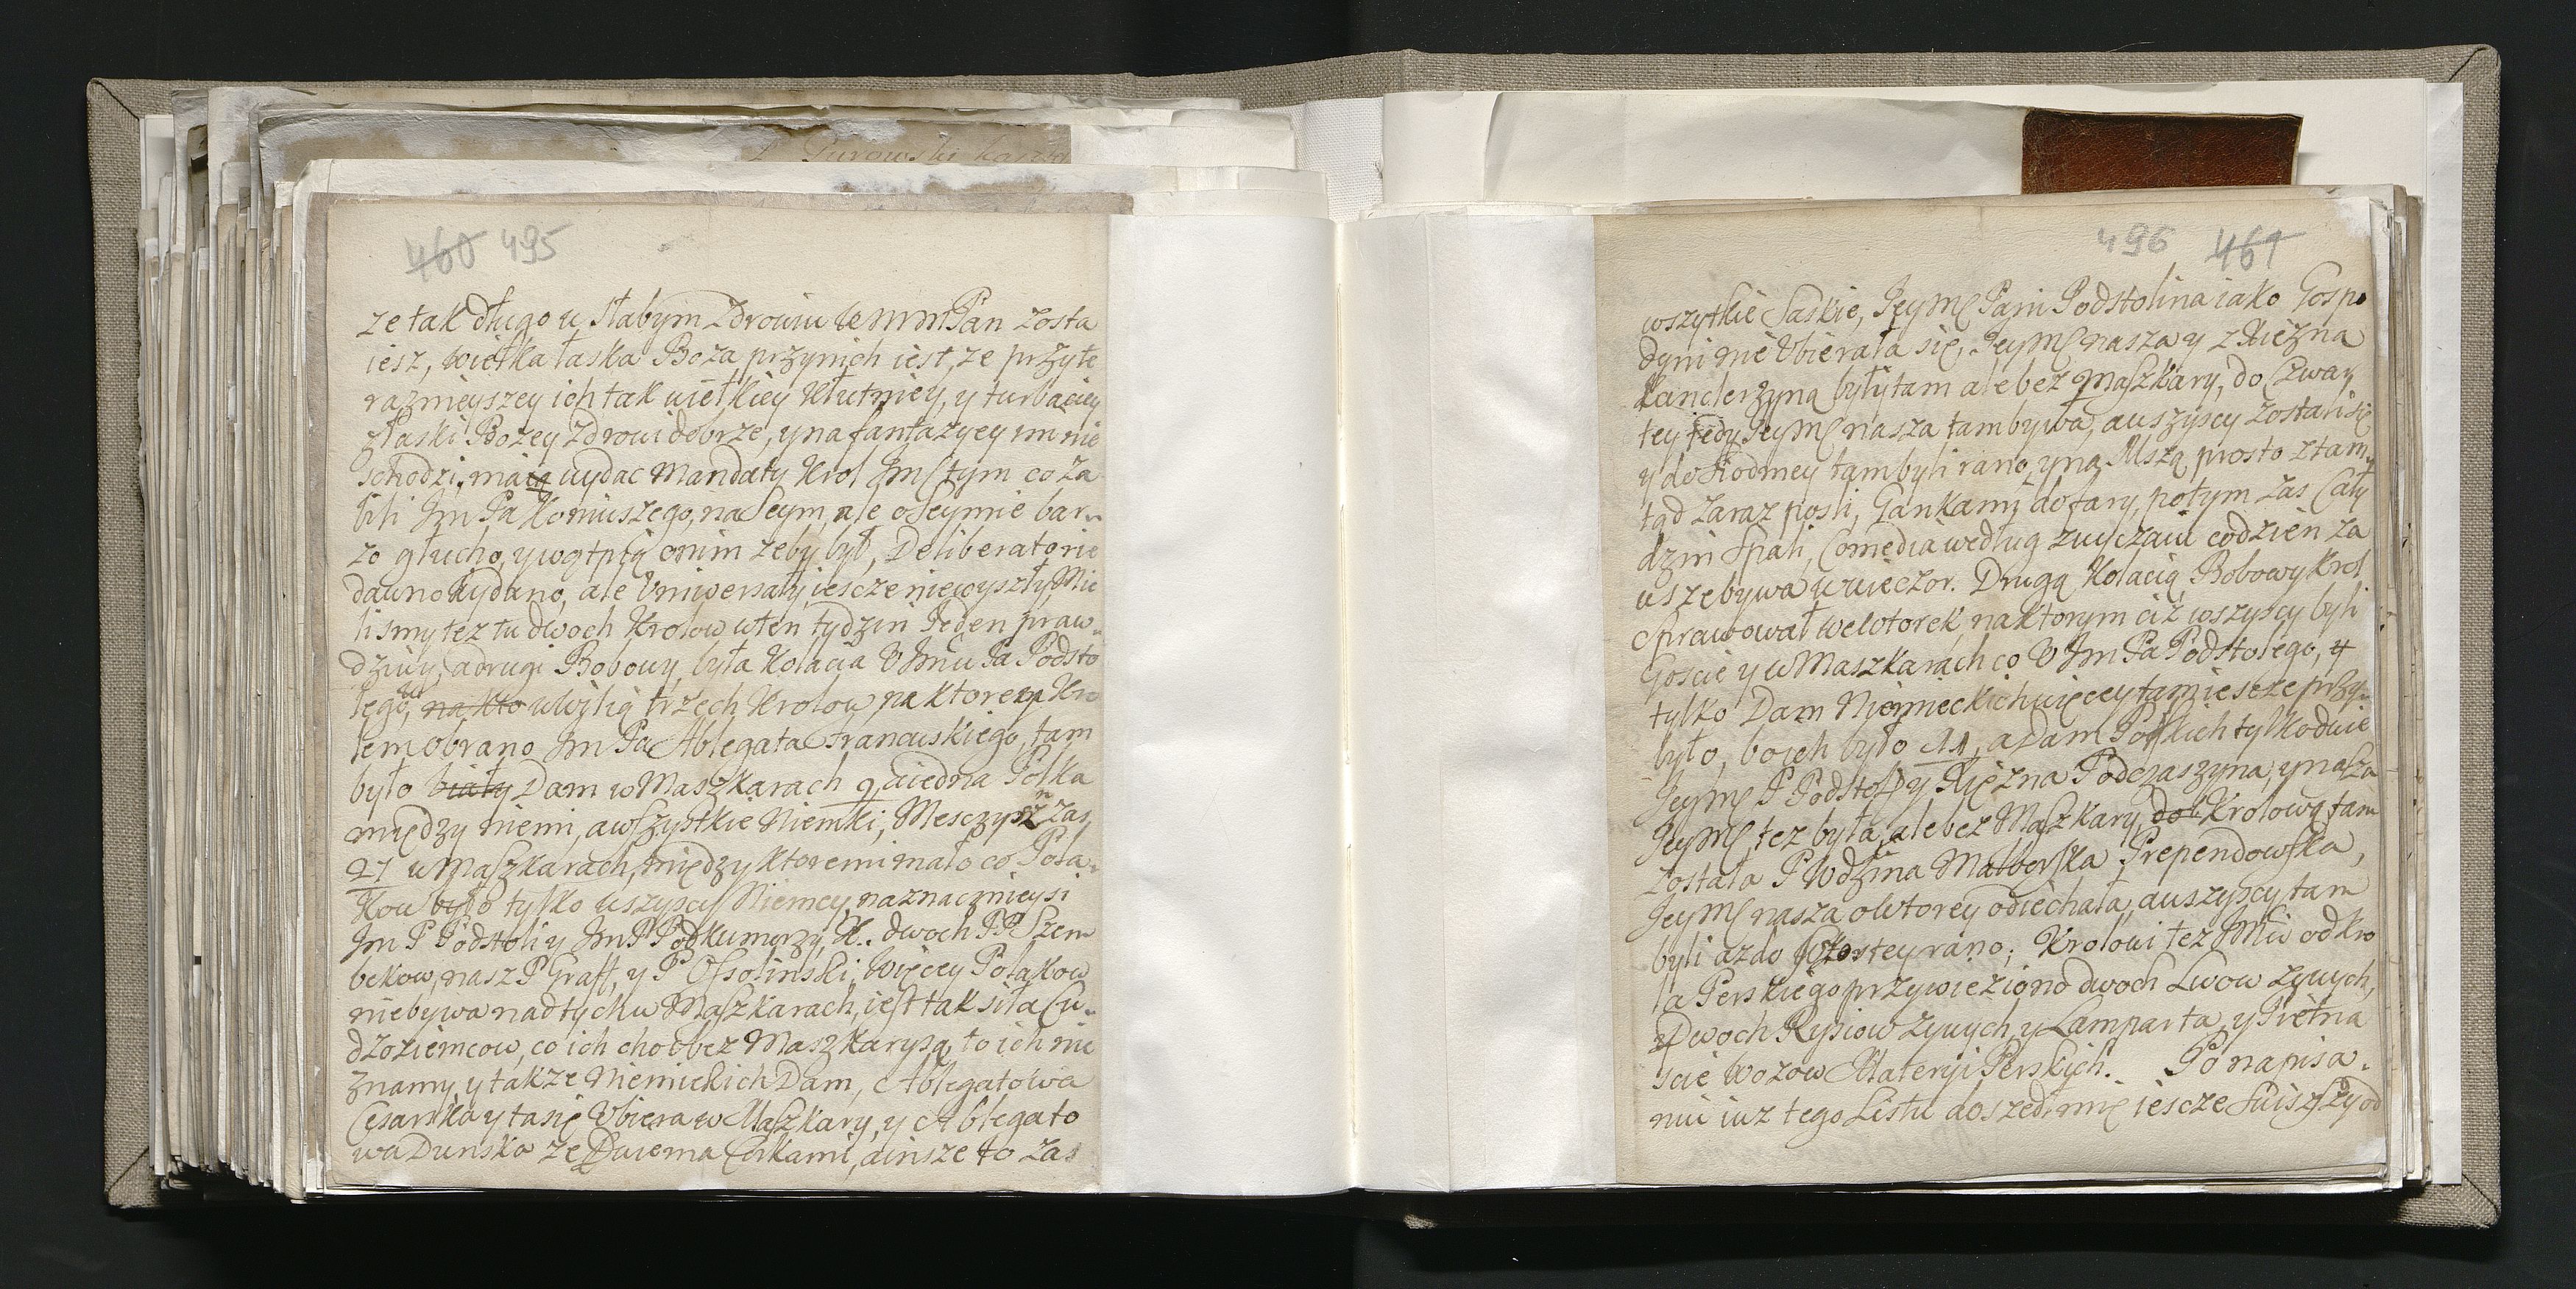 P Gurowski
460 495
ze tak długo w słabym zdrowiu WMMPan zosta
iesz, wielka łaska Boza przynich iest, ze przy te
raznieyszey ich tak wielkiey kłutniey, y turbaciey
złaski Bozey zdrowi dobrze, y na fantazyey im nie
schodzi, maią wydac Mandaty Krol Jm tym co za
bili Jm Pa Koniuszego, na Seym, ale o Seymie bar„
zo głucho, y wątpią onim zeby był, Deliberatorie
dawno wydano, ale Vniwersały iescze niewyszły, Mie
lismy tez tu dwoch Krolow wten tydzin Jeden praw„
dziwy, adrugi Bobowy, była Kolacia V Jmci Pa Podsto
lego, na kto w wiliią trzech Krolow na ktorey Kro
lem obrano Jm Pa Ablegata Francuskiego, tam
było biały Dam w Maszkarach 9, a iedna Polka
między niemi, a wszystkie Niemki, Mesczyszn zas
21 w Maszkarach, między ktoremi mało co Pola„
kow było tylko wszyscy Niemcy, naznacznieysi
Jm P Podstoli y Jm P Podkumorzy K.. dwoch PP Szem
bekow, nasz P Graff, y P Ossolinski, więcey Polakow
niebywa nad tych w Maszkarach, iest tak siła Cu„
dzoziemcow, co ich choc bez Maszkary są, to ich nie
znamy, y takze Niemieckich Dam, Ablegatowa
Cesarska y ta się Vbiera w Maszkary, y Ablegato
wa Dunska ze Dwiema Corkami, a insze to zas
496 461
wszytkie Saskie, Jeymc Pani Podstolina iako Gospo
dyni nie Vbierała się, Jeymc nasza y z Xiezna
Kanclerzyną były tam ale bez Maszkary, do Czwar
tey tedy Jeymc nasza tam bywa, a wszyscy zostali się
y do siodmey tam byli rano, y na Mszą prosto ztam„
tąd zaraz posli, Gankami do fary, potym zas Cały
dzin spali, Comedia według zwyczaiu codzien za
wsze bywa w wieczor. Drugą Kolacią Bobowy Krol
sprawował we Wtorek, na ktorym ciz wszyscy byli
Goscie y w Maszkarach co V Jm Pa Podstolego,
tylko Dam Niemieckich więcey tam iescze przy„
było, bo ich było 11, a Dam Polskich tylko dwie
Jeymc P Podstol y Xięzna Podczaszyna, y nasza
Jeymc tez była, ale bez Maszkary, Krolową tam
została P Wdzina Malborska Prependowska,
Jeymc nasza o Wtorey odiechała, a wszyscy tam
byli az do szostey rano; Krolowi tez Jmci od Kro
la Perskiego przywieziono dwoch Lwow zywych,
Dwoch Rysiow zywych, y Lamparta, y Piętna
scie Wozow Materyi Perskich. Po napisa„
niu iuz tego Listu doszedł mię iescze od